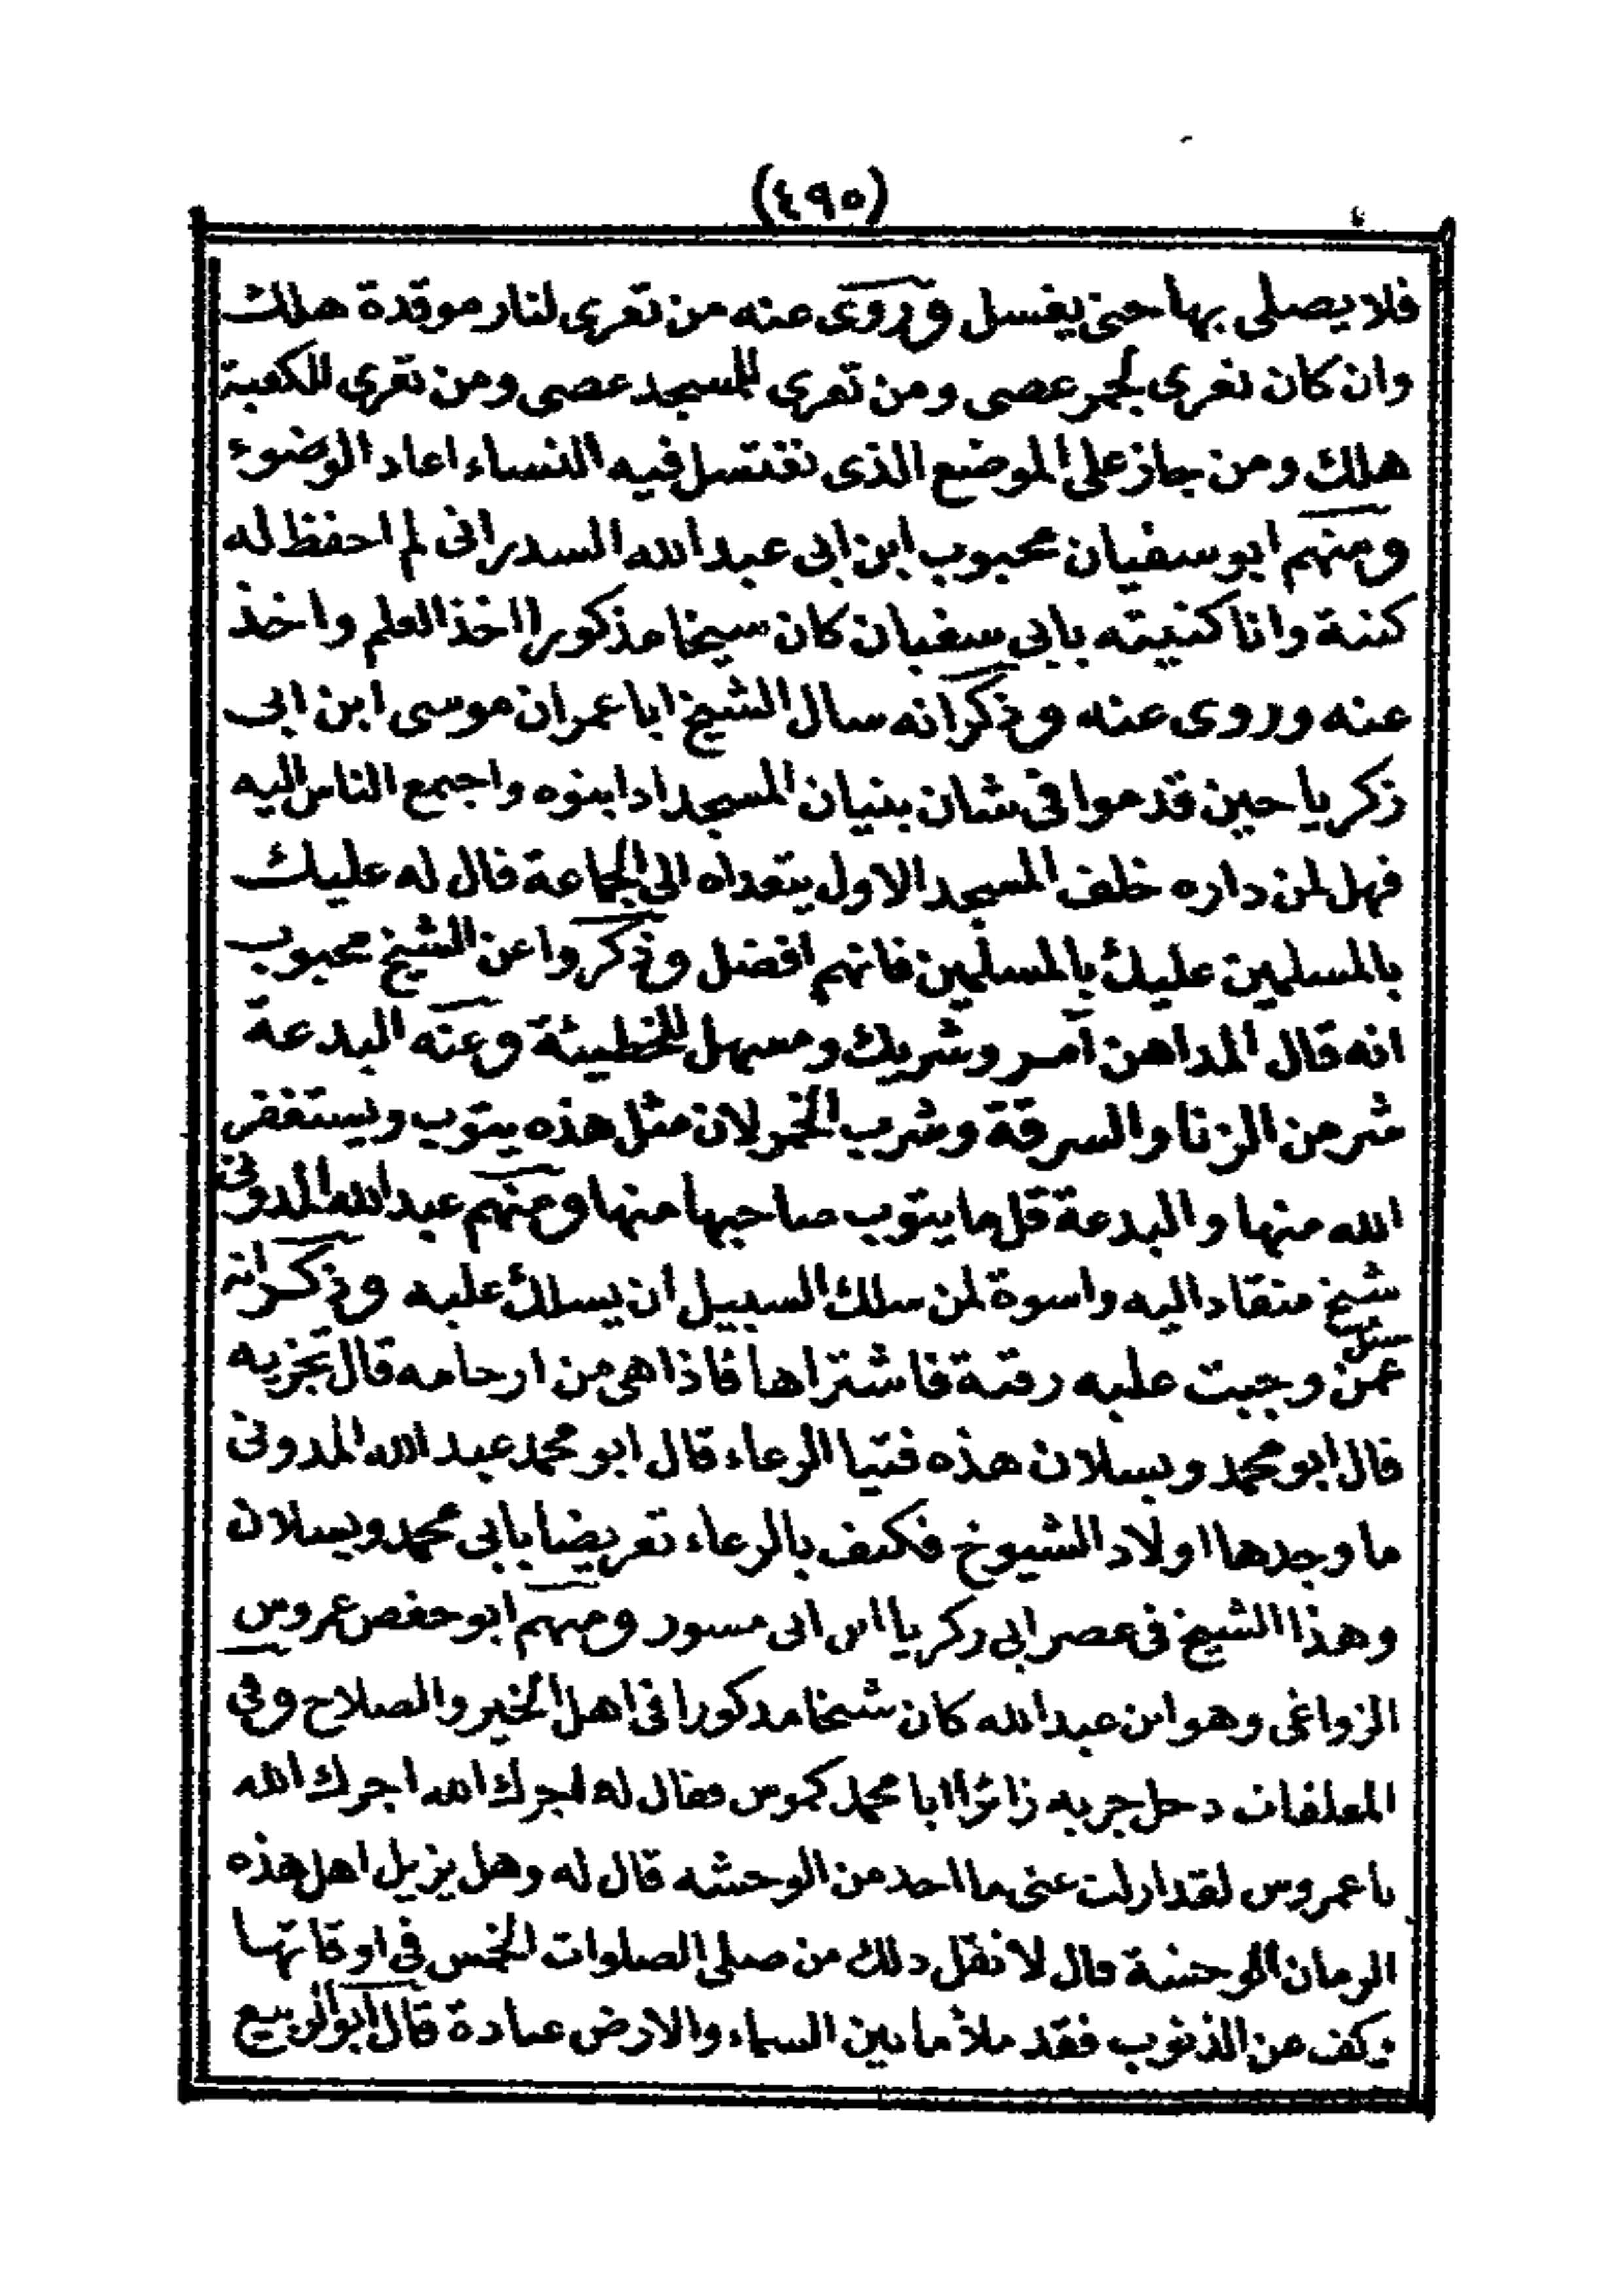 (٤٩٥)
فلا يصلى بها حتى يغسل وروى عنه من تعرى لنار موقدة هلك
وان كان تعرى لجمر عصى ومن تعرى للمسجد عصى ومن تعرى للكعبة
هلك ومن جاز على الموضع الذى تغتسل فيه النساء اعاد الوضوء
ومنهم ابو سفيان محبوب ابن ابى عبد الله السدراتى لم احفظ له
كنية وانا كنيته بابى سفيان كان شيخا مذكورا اخذ العلم واخذ
عنه وروى عنه وذكر انه سال الشيخ ابا عمران موسى ابن ابى
زكريا حين قدموا فى شان بنيان المسجد اذا بنوه واجمع الناس اليه
فهل لمن داره خلف المسجد الاول يتعداه الى الجماعة قال له عليك
بالمسلمين عليك بالمسلمين فانهم افضل وذكروا عن الشيخ محبوب
انه قال المداهن آمر وشريك ومسهل للخطيئة وعنه البدعة
شر من الزنا والسرقة وشرب الخمر لان مثل هذه يتوب ويستغفر
الله منها والبدعة قل ما يتوب صاحبها منها ومنهم عبد الله المدونى
شيخ منقاد اليه واسوة لمن سلك السبيل ان يسلك عليه وذكر انه
سئل
عمن وجبت عليه رقبة فاشتراها فاذا هى من ارحامه قال تجزيه
قال ابو محمد ويسلان هذه فتيا الرعاء قال ابو محمد عبد الله المدونى
ما وجدها اولاد الشيوخ فكيف بالرعاء تعريضا بابى محمد ويسلان
وهذا الشيخ فى عصر ابى زكريا ابن ابى مسور ومنهم ابو حفص عمروس
الزواغى وهو ابن عبد الله كان شيخا مذكورا فى اهل الخير والصلاح وفى
المعلقات دخل جربه زائرا ابا محمد كموس فقال له اجرك الله اجرك الله
يا عمروس لقد ازلت عنى ما اجد من الوحشه قال له وهل يزيل اهل هذه
الزمان الوحشة قال لا تقل ذلك من صلى الصلوات الخمس فى اوقاتها
وكف عن الذنوب فقد ملأ ما بين السماء والارض عبادة قال ابو الربيع